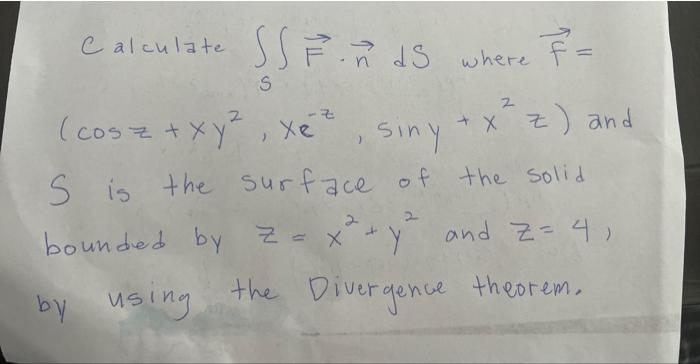 Calculate ∬ F⃗ · n⃗ dS where F⃗ =
S
(cos z + xy², xe⁻ᶻ, sin y + x² z) and
S is the surface of the solid
bounded by z = x² + y² and z = 4,
by using the Divergence theorem.